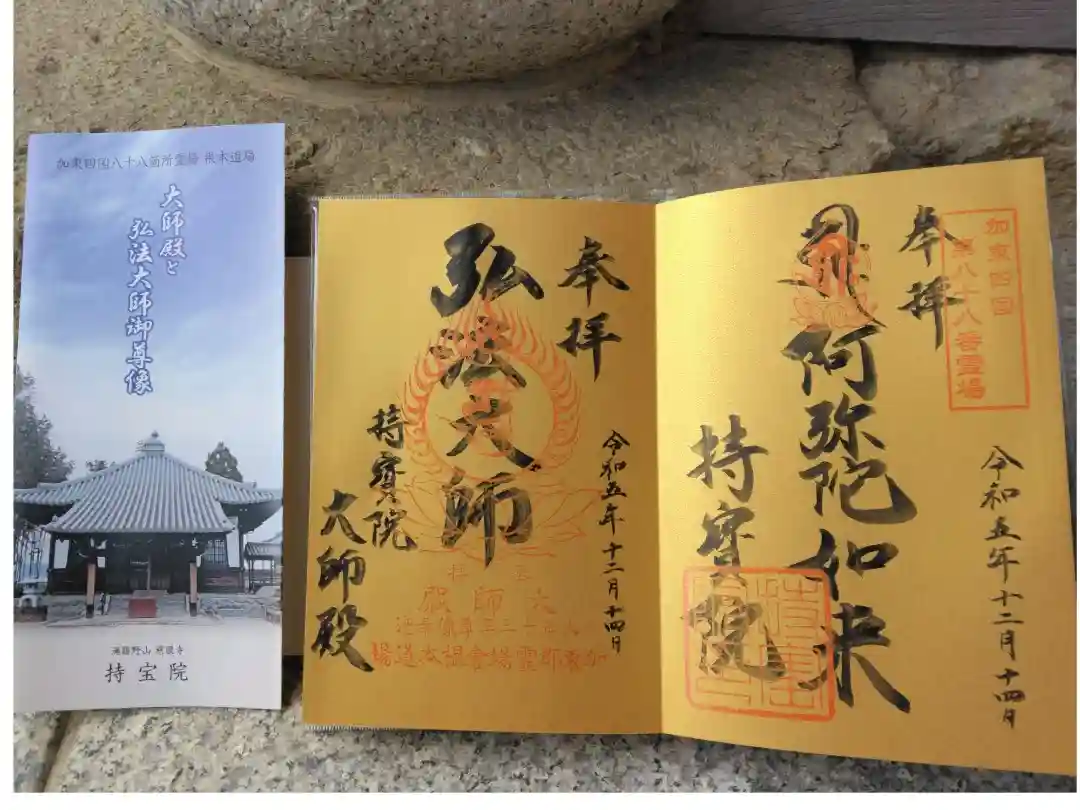 加東四国八十八箇所霊場 根本道場
大師殿と
弘法大師御尊像
慈眼寺
持宝院
奉拝
加東四国
第八十八番霊場
阿弥陀如来
持寳院
令和五年十二月十四日
奉拝
弘法大師
令和五年十二月十四日
持寳院
大師殿
大師殿